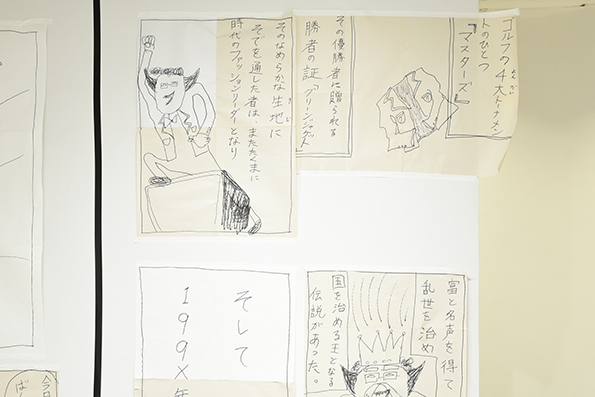 ゴルフの4大トーナメン
だい
トのひとつ
「マスターズ」
その優勝者に贈られる
勝者の証「グリーンジャケット」
そのなめらかな生地に
きじ
そでを通した者は、またたくまに
時代のファッションリーダーとなり
富と名声を得て
乱世を治め
国を治める王となる
伝説があった。
そして
199X年
今日
ば